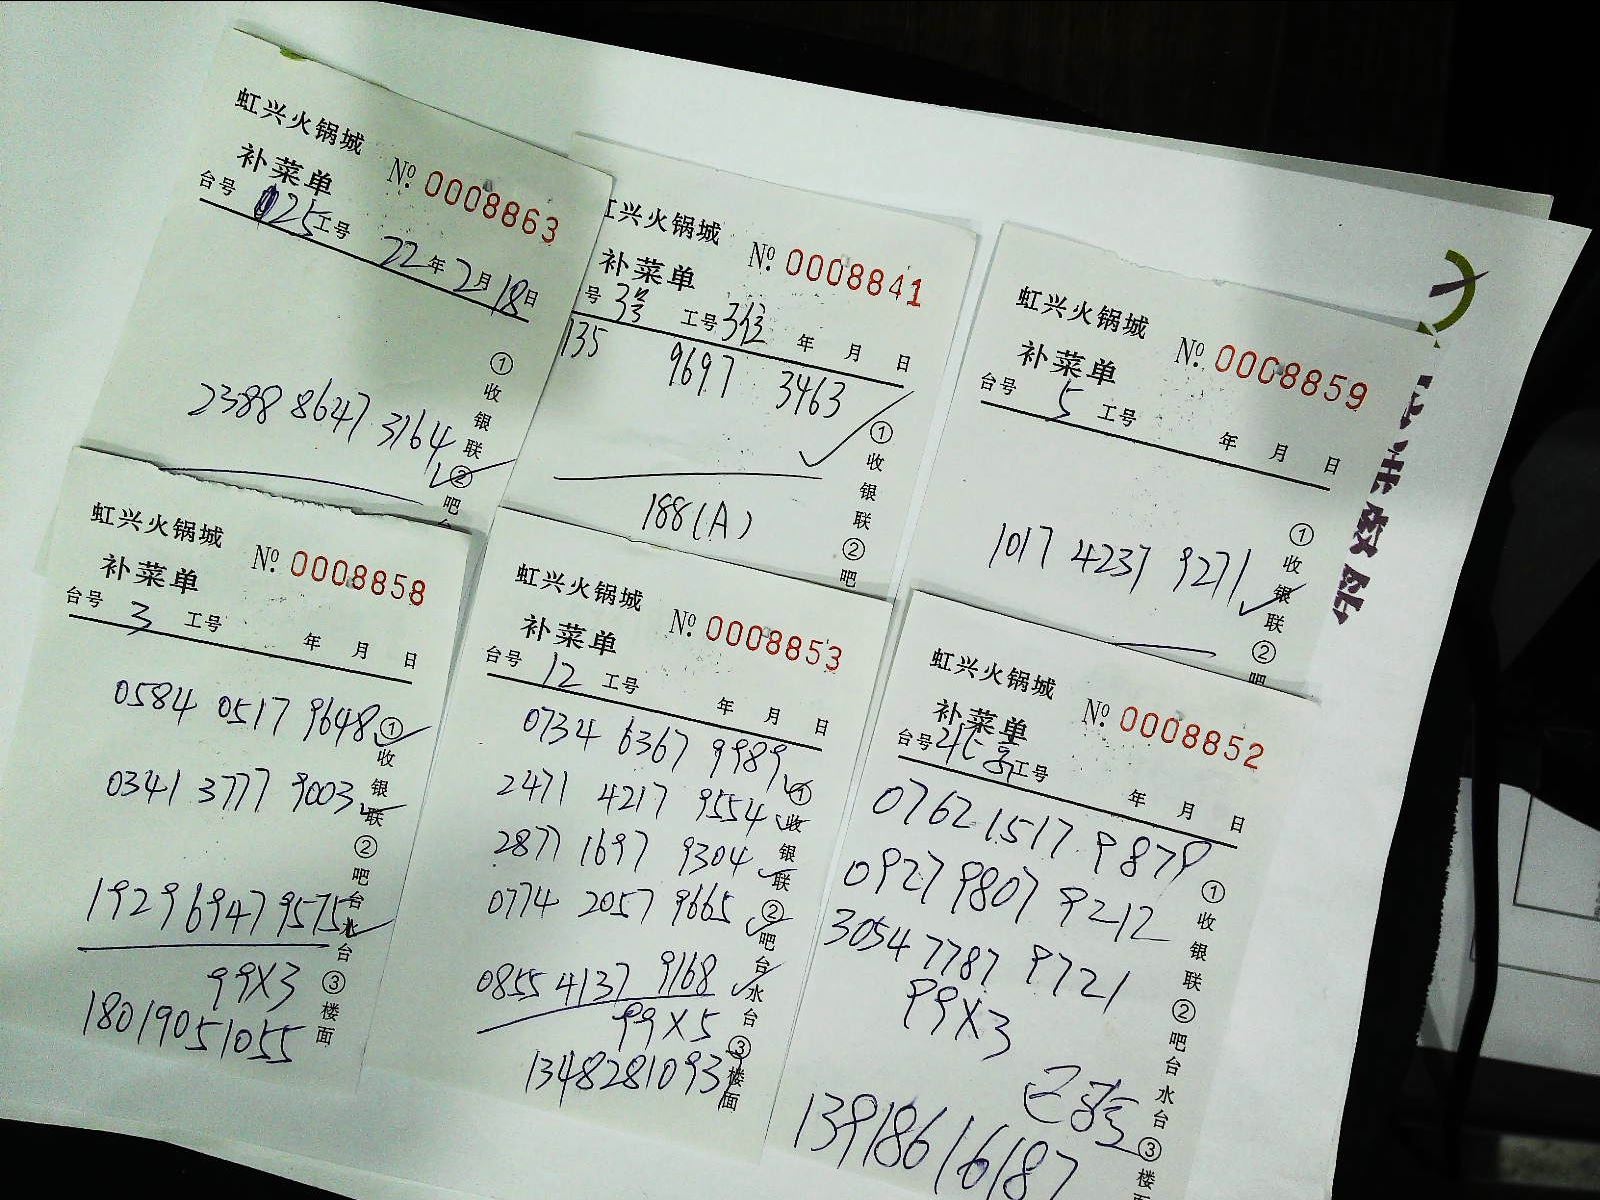 虹兴火锅城
补菜单 № 0008863
台号 025 工号 22年2月18日
2388 8647 3164
①收银联②吧台
虹兴火锅城
补菜单 № 0008841
号 工号 年 月 日
135 9697 3463
188(A)
①收银联②吧
虹兴火锅城
补菜单 № 0008859
台号 5 工号 年 月 日
1017 4237 9271
①收银联②吧
虹兴火锅城
补菜单 № 0008858
台号 3 工号 年 月 日
0584 0517 9648
0341 3777 9003
1929 6947 9575
99X3
18019051055
①收银联②吧台水台③楼面
虹兴火锅城
补菜单 № 0008853
台号 12 工号 年 月 日
0734 6367 9989
2471 4217 9554
2877 1697 9304
0774 2057 9665
0855 4137 9168
99X5
13482810931
①收银联②吧台水台③楼面
虹兴火锅城
补菜单 № 0008852
台号 工号 年 月 日
0762 1517 9879
0927 9807 9212
3054 7787 9721
99X3
已验
13918616187
①收银联②吧台水台③楼